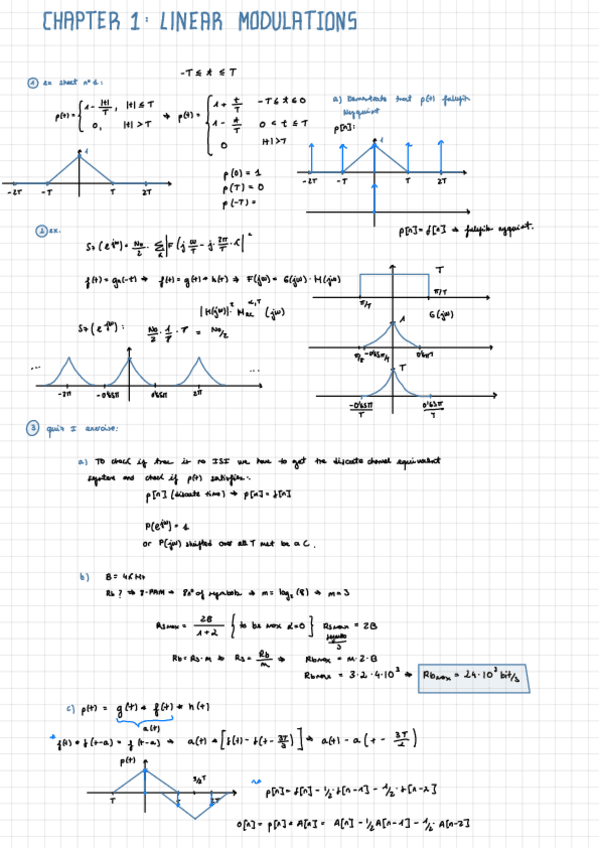 CHAPTER 1: LINEAR MODULATIONS
-T ≤ t ≤ T
① ex sheet nº1:
p(t) = { 1 - |t|/T, |t| ≤ T ⇒ p(t) = { 1 + t/T -T ≤ t ≤ 0
0, |t| > T
1 - t/T 0 < t ≤ T
0 |t| > T
a) Demonstrate that p(t) fulfills
Nyquist
p[n]:
1
-2T -T T 2T
1
-2T -T T 2T
p(0) = 1
p(T) = 0
p(-T) =
p[n] = δ[n] ⇒ fulfills nyquist.
② ex.
f(t) = g(-t) ⇒ f(t) = g(t) * h(t) ⇒ F(jω) = G(jω) · H(jω)
T
π/T
G(jω)
1
No/2 · 1/T · T = No/2
... ...
-2π -0'65π 0'65π 2π
T
-0'65π/T 0'65π/T
③ quiz I exercise:
a) To check if there is no ISI we have to get the discrete channel equivalent
system and check if p(t) satisfies:
p[n] (discrete time) ⇒ p[n] = δ[n]
P(e^jω) = 1
or P(jω) shifted over all T must be a C.
b) B = 4kHz
Rb? ⇒ 8-PAM ⇒ 8 nº of symbols ⇒ m = log₂(8) ⇒ m = 3
Rs max = 2B/(1+α) { to be max α=0 } Rs max = 2B
symbols/s
Rb = Rs · m ⇒ Rs = Rb/m ⇒ Rb max = m · 2 · B
Rb max = 3 · 2 · 4 · 10³ ⇒ Rb max = 24 · 10³ bit/s
c) p(t) = g(t) * f(t) * h(t)
a(t)
p(t)
T
3/2T
2T
p[n] = δ[n] - 1/2 · δ[n-1] - 1/2 · δ[n-2]
o[n] = p[n] * A[n] = A[n] - 1/2 A[n-1] - 1/2 · A[n-2]